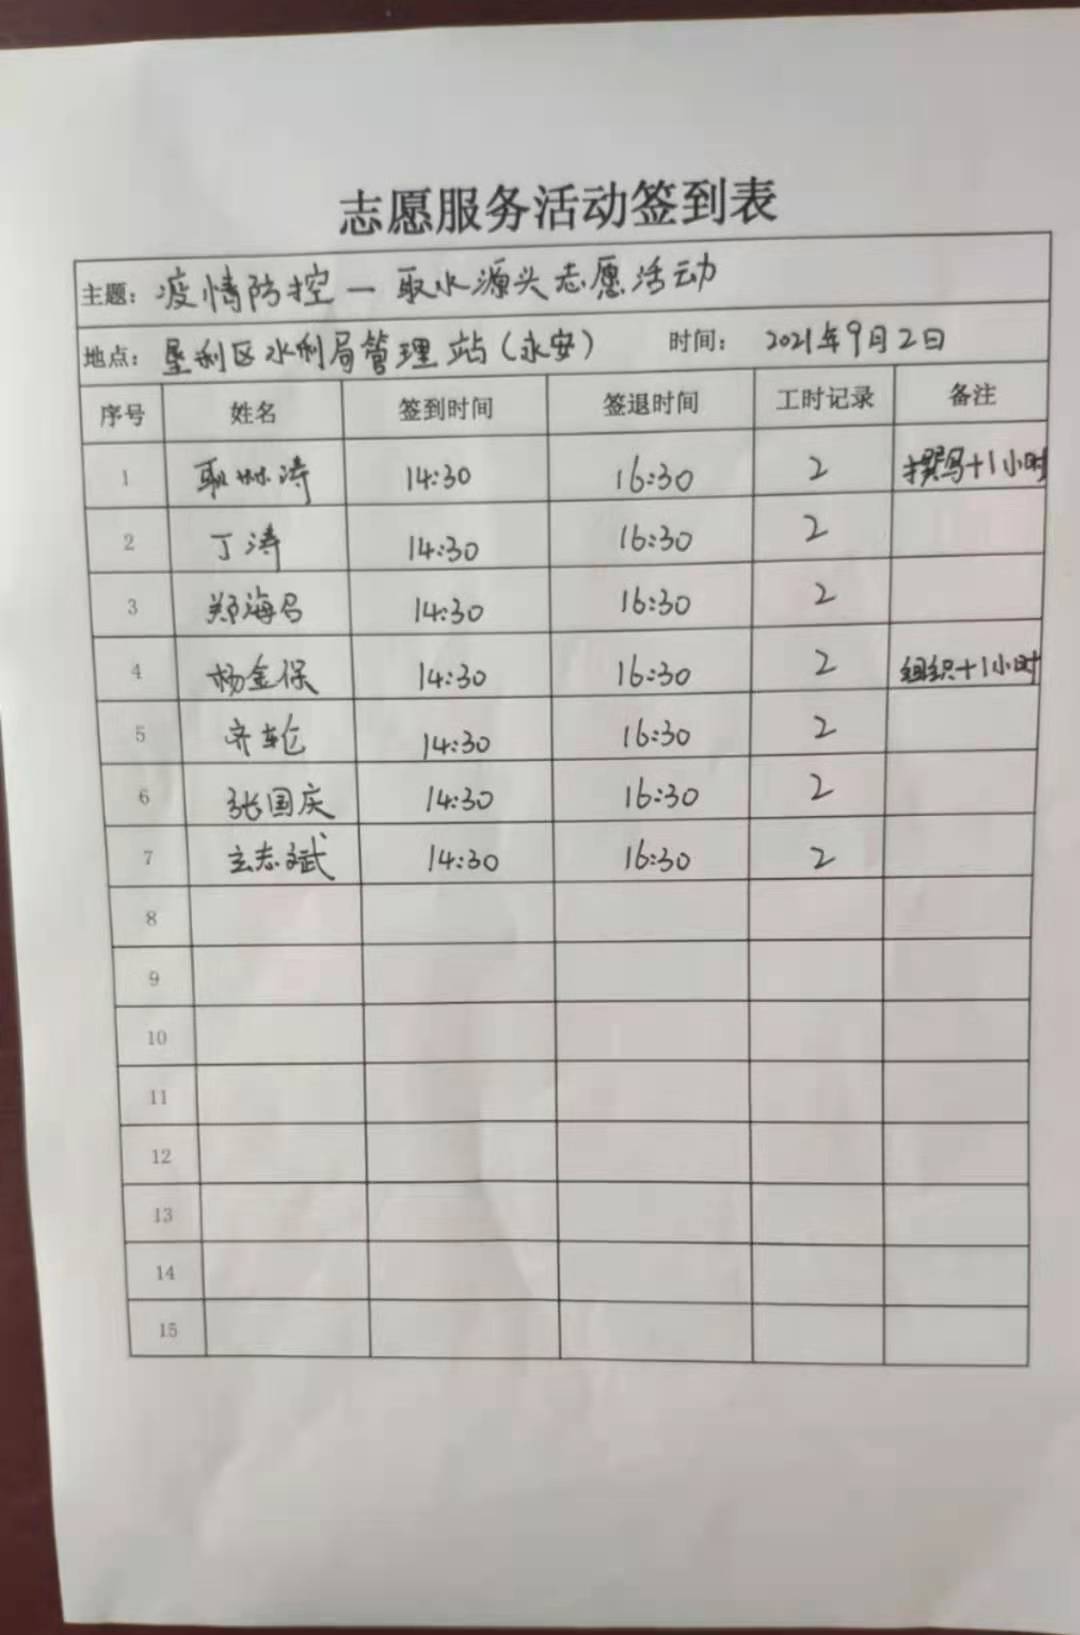 志愿服务活动签到表
主题：疫情防控一取水源头志愿活动
地点：垦利区水利局管理站（永安） 时间： 2021年9月2日
序号 姓名 签到时间 签退时间 工时记录 备注
1 涛 14:30 16:30 2 撰写+1小时
2 丁涛 14:30 16:30 2
3 郑海 14:30 16:30 2
4 杨金保 14:30 16:30 2 组织+1小时
5 齐 14:30 16:30 2
6 张国庆 14:30 16:30 2
7 志斌 14:30 16:30 2
8
9
10
11
12
13
14
15